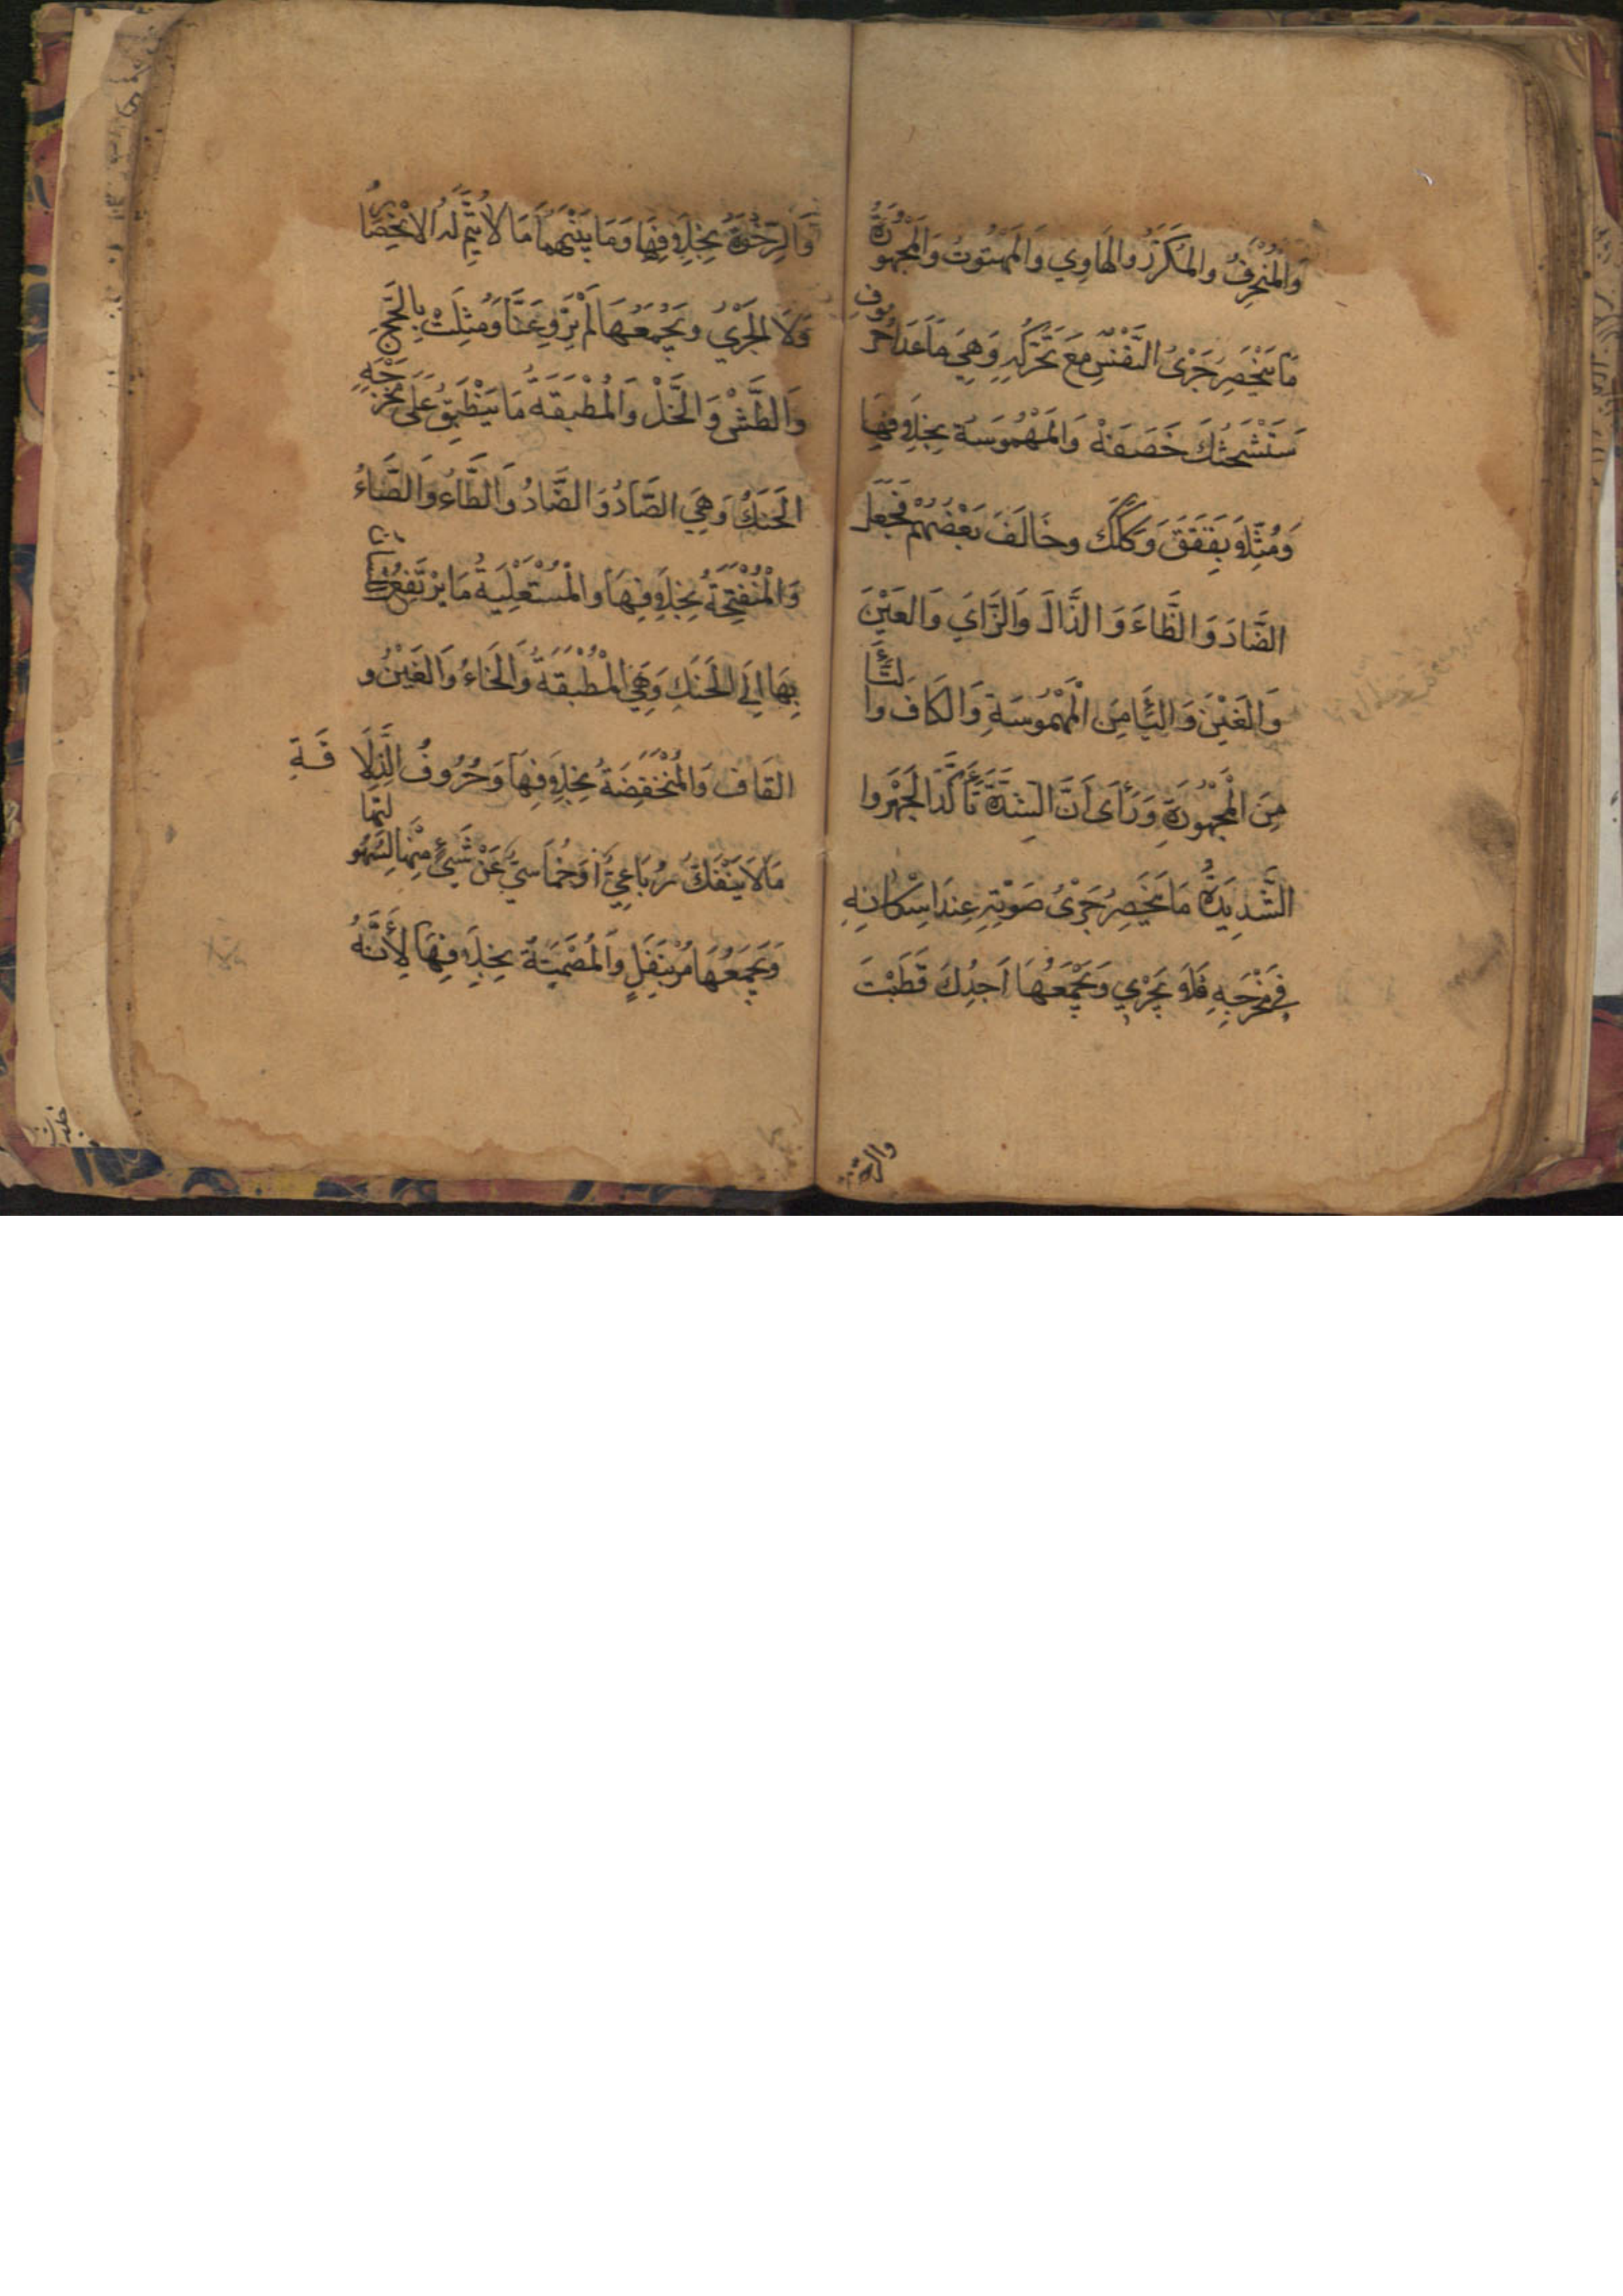 وَالمُنْحَرِفُ والمُكَرَّرُ والهَاوِي وَالمَهْتُوتُ وَالمَجْهُورَةُ
مَا يَنْحَصِرُ جَرْىُ النَّفَسِ مَعَ تَحَرُّكِهِ وَهِيَ مَا عَدَا حُرُوفِ
سَتَشْحَثُكَ خَصَفَهْ وَالمَهْمُوسَةُ بِخِلَافِهَا
وَمُثِّلَا بِقَقَقَ وَكَكَكَ وخَالَفَ بَعْضُهُمْ فَجَعَلَ
الضَّادَ وَالظَّاءَ وَالذَّالَ وَالزَّايَ وَالعَيْنَ
وَالغَيْنَ وَاليَٓا مِنَ الْمَهْمُوسَةِ وَالكَافَ والتَّآءَ
مِنَ الْمَجْهُورَةِ وَرَأَى اَنَّ الشِدَّةَ تَأَكُّدُ الجَهْرِ وا
الشَّدِيْدَةُ مَا يَنْحَصِرُ جَرْىُ صَوْتِهِ عِنْدَ اِسْكَانِهِ
فِي مَخْرَجِهِ فَلَا يَجْرِي وَيَجْمَعُهَا اَجِدُكَ قَطَبْتَ
والرخوة
وَالرِّخْوَةُ بِخِلَافِهَا وَمَا بَيْنَهُمَا مَا لَا يَتِمُّ لَهُ الاِنْحِصَارُ
وَلَا الجَرْيُ ويَجْمَعُهَا لَمْ يَرْوِعَنَّا وَمُثِلَتْ بِالحَجِّ
وَالطَّشْ وَالخَلْ وَالمُطْبَقَةُ مَا يَنْطَبِقُ عَلَى مَخْرَجِهِ
الحَنَكُ وَهِيَ الصَّادُ وَالضَّادُ وَالطَّاءُ وَالظَّاءُ
وَالْمُنْفَتِحَةُ بِخِلَافِهَا والْمُسْتَعْلِيَةُ مَا يَرْتَفِعُ اللسان
بِهَا اِلَى الحَنَكِ وَهِيَ المُطْبَقَةُ وَالخَاءُ وَالغَيْنُ و
القَافُ وَالمُنْخَفِضَةُ بِخِلَافِهَا وَحُرُوفُ الذَّلَاقَةِ
مَا لَا يَنْفَكُّ رُبَاعِيٌّ اَوْ خُمَاسِيٌّ عَنْ شَيْءٍ مِنْهَا لِسُهُولَتِهَا
وَيَجْمَعُهَا مُرْبِنَفَلٍ وَالمُصْمَتَةُ بِخِلَافِهَا لِأَنَّهُ